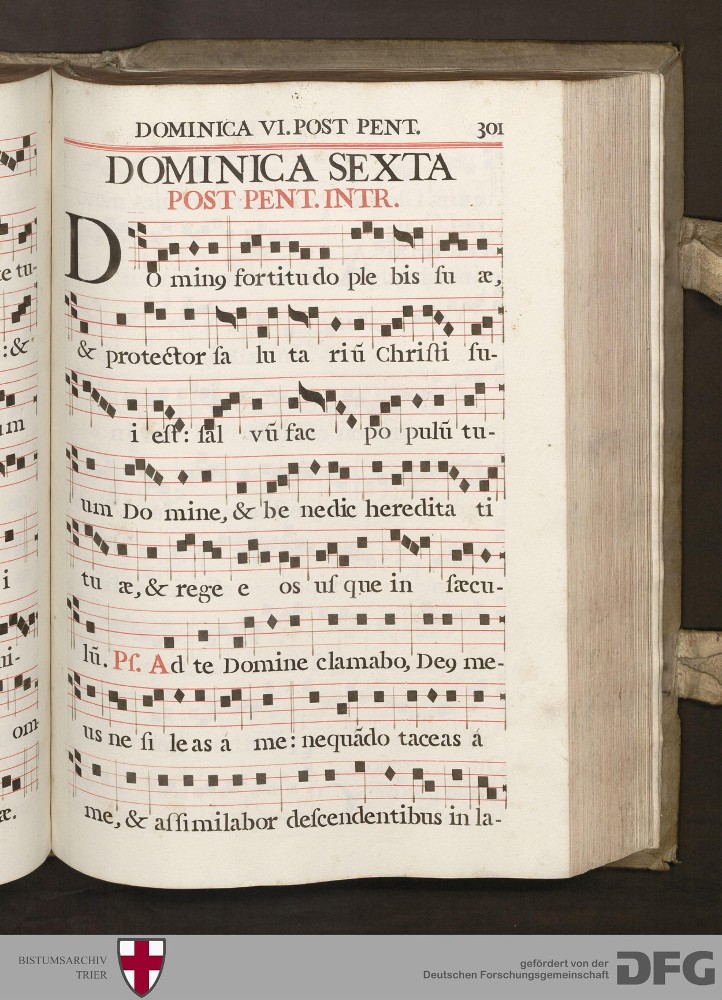 DOMINICA VI. POST PENT. 301
DOMINICA SEXTA
POST PENT. INTR.
DO minꝯ fortitudo ple bis ſu æ,
& protector ſa lu ta riū Chriſti ſu-
i eſt: ſal vū fac po pulū tu-
um Do mine, & be nedic heredita ti
tu æ, & rege e os uſ que in ſæcu-
lū. Pſ. Ad te Domine clamabo, Deꝯ me-
us ne ſi leas á me: nequādo taceas á
me, & aſſimilabor deſcendentibus in la-
te tu-
: &
um
i
ui-
om-
æ.
BISTUMSARCHIV
TRIER
gefördert von der
Deutschen Forschungsgemeinschaft
DFG